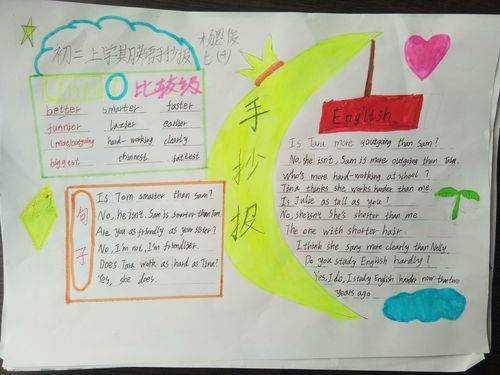 初二上学期英语手抄报
七(4)
Unit
比较级
better smarter faster
funnier lazier earlier
(more)outgoing hard-working clearly
biggest thinnest fattest
句子
Is Tom smarter than Sam?
No, he isn't. Sam is smarter than Tom
Are you as friendly as your sister?
No, I'm not, I'm friendlier.
Does Tara work as hard as Tina?
Yes, she does.
手抄报
English
Is Tara more goutgoing than Sam?
No, she isn't, Sam is more outgoing than Tara.
Who's more hard-working at school?
Tina thinks she works harder than me.
Is Julie as tall as you?
No, she isn't. She's shorter than me.
The one with shorter hair
I think she sang more clearly than Nelly
Do you study English hardly?
Yes, I do, I study English harder now than two
years ago